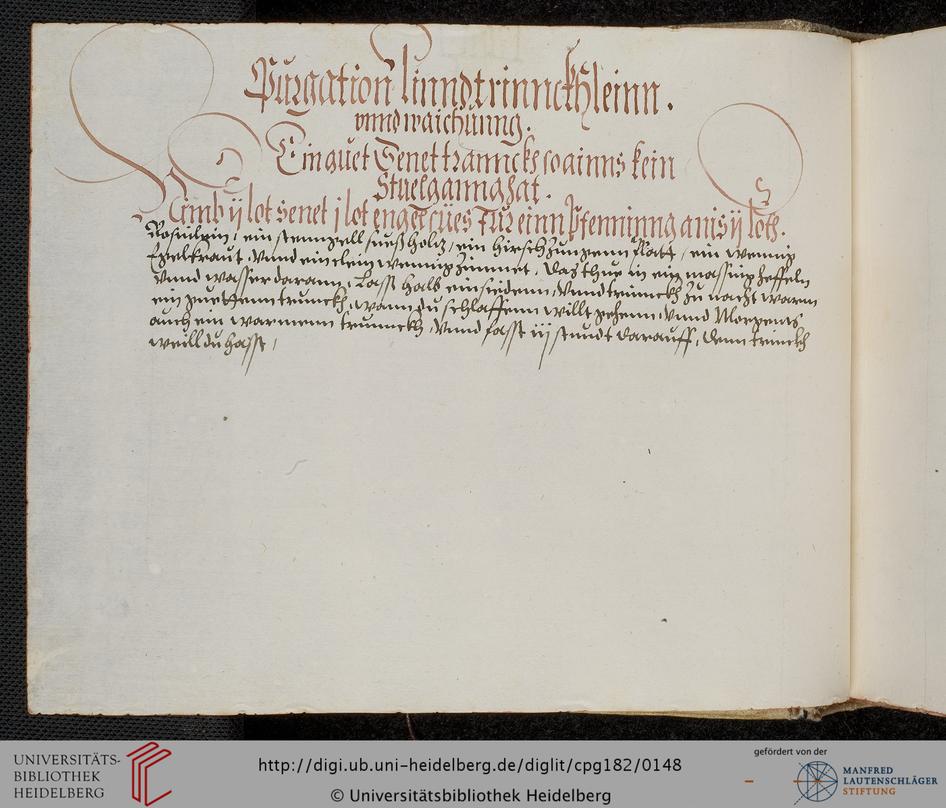 Purgation unnd trinnckhleinn.
unnd waichung.
Ein guet Senet tranncks so ainns kein
Stuelganng hat.
Nimb ij lot senet j lot engelsües Für einn Pfenninng anis ij loth.
Rosinlein, ein stempfell suesholtz, ein hirschZungenn Platt, ein wennig
Ezelkraut, Vnnd ein clein wennig Zimmet, das thue in ein massing heffelin
vnnd wasser darann, Lass halb einsiedenn, Vnnd trinnckh Zu nacht warm
ein guettenn trunckh, wann du schlaffenn willt gehenn, Vnnd Morgens
auch ein warmenn trunckh, Vnnd fasst iij stundt darauff, denn trunckh
weill du hasst,
UNIVERSITÄTS-
BIBLIOTHEK
HEIDELBERG
http://digi.ub.uni-heidelberg.de/diglit/cpg182/0148
© Universitätsbibliothek Heidelberg
gefördert von der
MANFRED
LAUTENSCHLÄGER
STIFTUNG